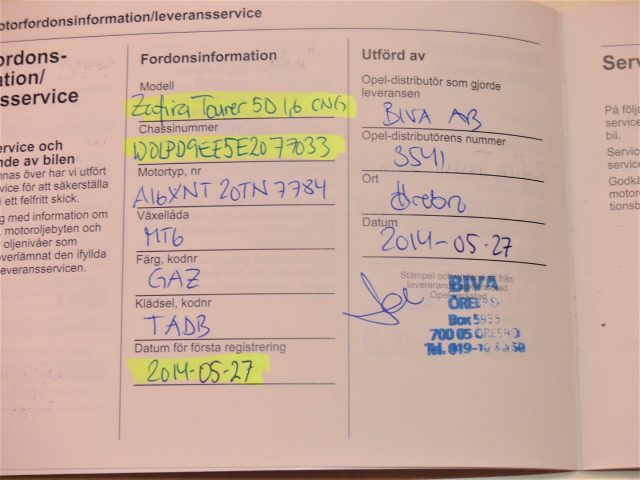 otorfordonsinformation/leveransservice
ordons-
ation/
sservice
ervice och
nde av bilen
nnas över har vi utfört
vice för att säkerställa
i ett felfritt skick.
g med information om
motoroljebyten och
oljenivåer som
överlämnat den ifyllda
everansservicen.
Fordonsinformation
Modell
Zafira Tourer 5D 1,6 CNG
Chassinummer
W0LPD9EE5E2077033
Motortyp, nr
A16XNT 20TN7784
Växellåda
MT6
Färg, kodnr
GAZ
Klädsel, kodnr
TADB
Datum för första registrering
2014-05-27
Utförd av
Opel-distributör som gjorde
leveransen
BIVA AB
Opel-distributörens nummer
3541
Ort
Örebro
Datum
2014-05-27
Stämpel och från
levererande
Opel
BIVA
ÖREBRO
Box
700 05 ÖREBRO
Tel. 019-
Serv
På följa
service
bil.
Service
service
Godkä
motoro
tionsb